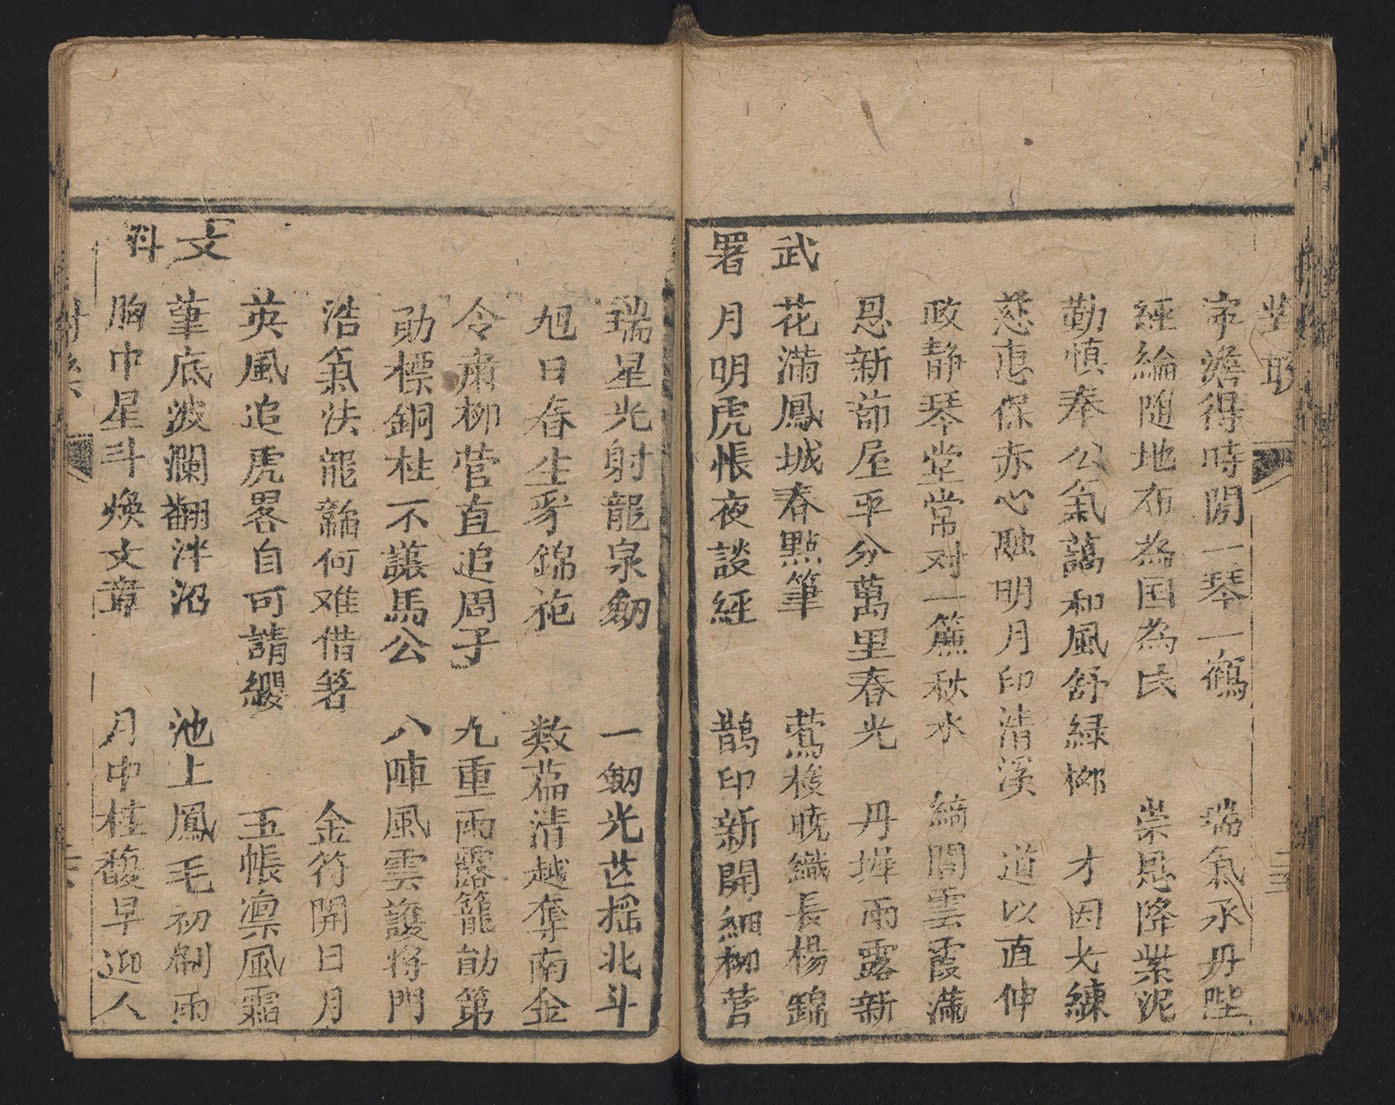 對联
字澹得時閒一琴一鶴 瑞氣承丹陛
經綸随地布為国為民 荣恩降紫泥
勤慎奉公氣藹和風舒緑柳 才因老練
慈恵保赤心融明月印清溪 道以直伸
政静琴堂常对一簾秋水 綺閣雲霞满
恩新蔀屋平分萬里春光 丹墀雨露新
武署
花满鳳城春點筆 鶯梭暁織長楊錦
月明虎帳夜談經 鵲印新開細柳营
瑞星光射龍泉劒 一劒光芒摇北斗
旭日春生豸錦袍 数莖清越奪南金
令肅柳营直追周子 九重雨露籠勛第
勛標銅柱不讓馬公 八陣風雲護将門
浩氣快龍韜何难借箸 金符開日月
英風追虎畧自可請纓 玉帳凛風霜
文科
筆底波瀾翻泮沼 池上鳳毛初剬雨
胸中星斗焕文章 月中桂馥早迎人